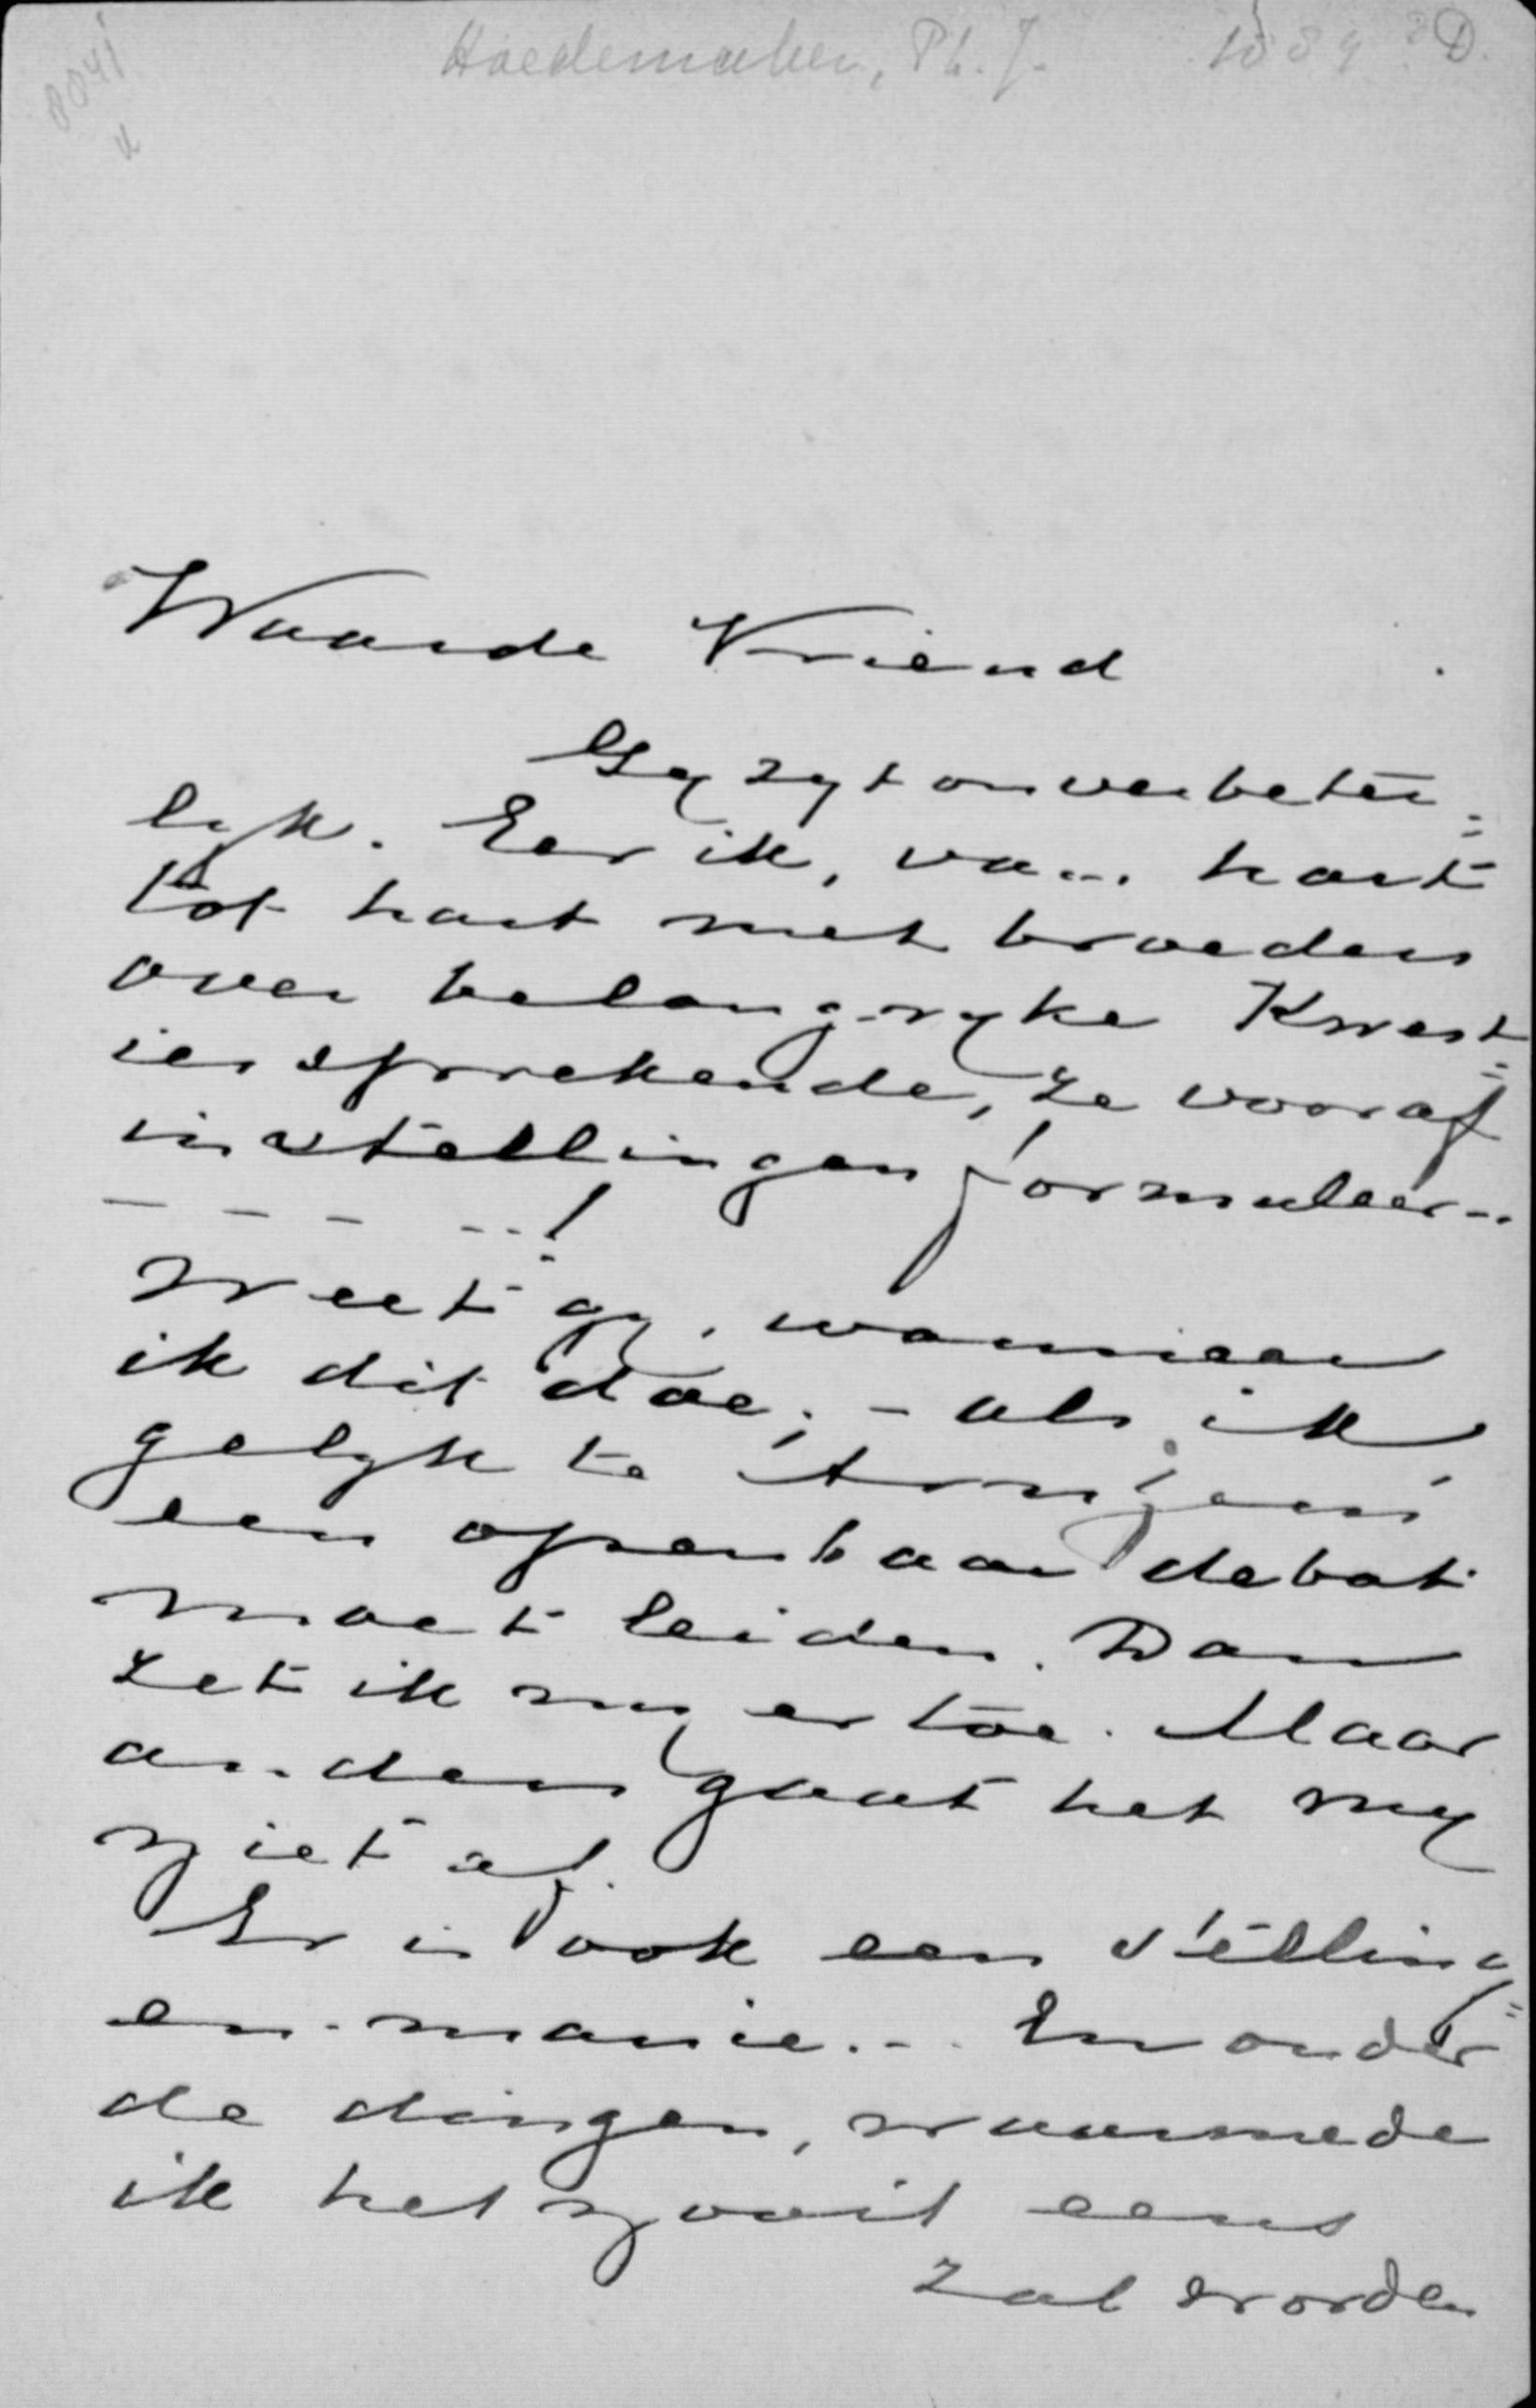 Hoedemaker, Ph. J. 1889 D.
8041
Waarde Vriend
Gy zyt onverbeter=
lyk. Eer ik, van hart
tot hart met broeders
over belangryke Kwest=
ies sprekende, ze vooraf
in stellingen formuleer..
- - - - - !
Weet gy, wanneer
ik dit doe; - als ik
gelyk te
een openbaar debat
moet leiden. Dan
zet ik my er toe. Maar
anders gaat het my
niet af.
Er is ook een stelling=
en-manie... En onder
de dingen, waarmede
ik het nooit eens
zal worden